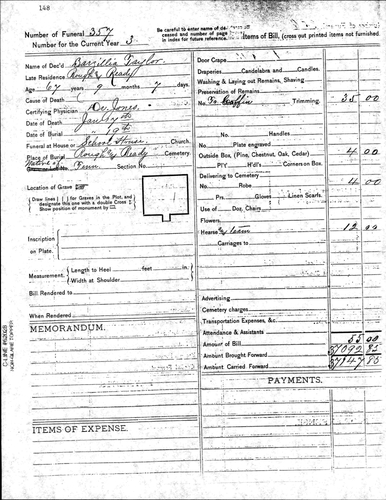 148
Number of Funeral 357
Number for the Current Year 3
Be careful to enter name of deceased and number of page in index for future reference.
Items of Bill, (cross out printed items not furnished.
Name of Dec'd Barzillia Taylor
Late Residence Rough & Ready
Age 67 years 9 months 7 days.
Cause of Death
Certifying Physician Dr Jones
Date of Death Jan 17th
Date of Burial " 19th
Funeral at House or School House. Church.
Place of Burial Rough & Ready Cemetery
Penn. Section No.
Location of Grave
Draw lines for Graves in the Plot, and designate this one with a double Cross
Show position of monument by
Inscription on Plate.
Measurement. Length to Heel feet in.
Width at Shoulder
Bill Rendered to
When Rendered
MEMORANDUM.
ITEMS OF EXPENSE.
Door Crape
Draperies Candelabra and Candles.
Washing & Laying out Remains, Shaving
Preservation of Remains
No. Coffin Trimming. 35 00
No. Handles
Plate engraved
Outside Box, (Pine, Chestnut, Oak, Cedar) 4 00
P'l'y H'd's Corners on Box.
Delivering to Cemetery 4 00
No. Robe
Prs. Gloves Linen Scarfs.
Use of Doz. Chairs
Flowers
Hearse & team 12 00
Carriages to
Advertising
Cemetery charges
Transportation Expenses, &c.
Attendance & Assistants
Amount of Bill 55 00
Amount Brought Forward 37092 85
Amount Carried Forward 37147 85
PAYMENTS.